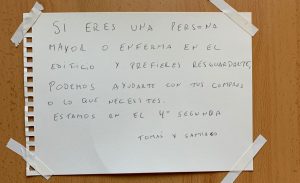 SI ERES UNA PERSONA
MAYOR O ENFERMA EN EL
EDIFICIO Y PREFIERES RESGUARDARTE,
PODEMOS AYUDARTE CON TUS COMPRAS
O LO QUE NECESITES.
ESTAMOS EN EL 4º SEGUNDA
TOMÁS Y SANTIAGO